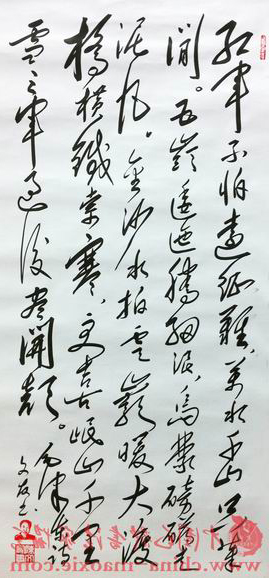 红軍不怕遠征難，万水千山只等
閒。五嶺逶迤騰細浪，烏蒙磅礴走
泥丸。金沙水拍雲崖暖，大渡
橋橫鐵索寒，更喜岷山千里
雪，三軍過後盡開顏。毛澤東詩
文友书
www.china-maoxie.com